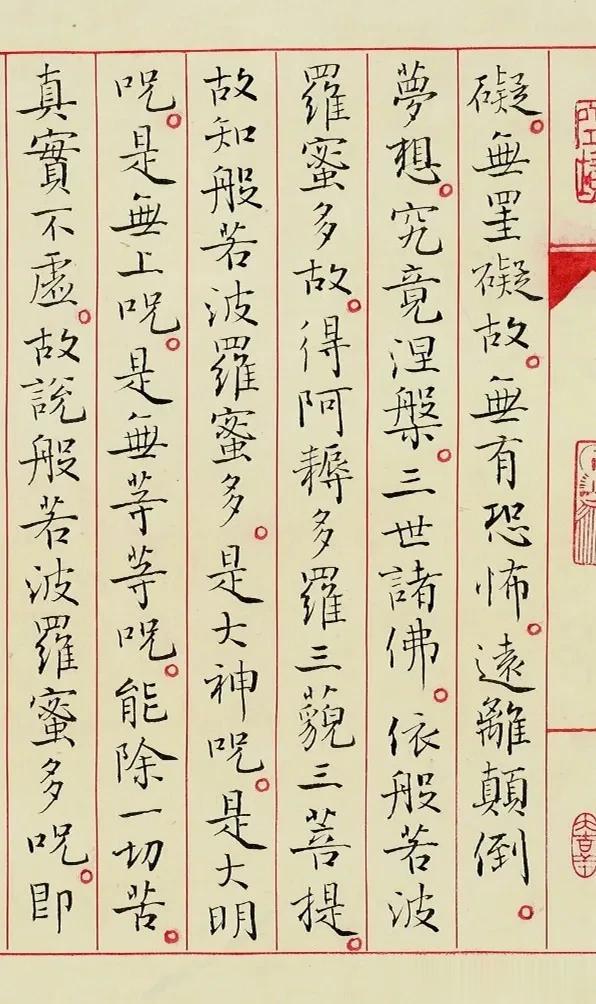 礙。無罣礙故。無有恐怖。遠離顛倒。
夢想。究竟涅槃。三世諸佛。依般若波
羅蜜多故。得阿耨多羅三藐三菩提。
故知般若波羅蜜多。是大神呪。是大明
呪。是無上呪。是無等等呪。能除一切苦。
真實不虛。故說般若波羅蜜多呪。即